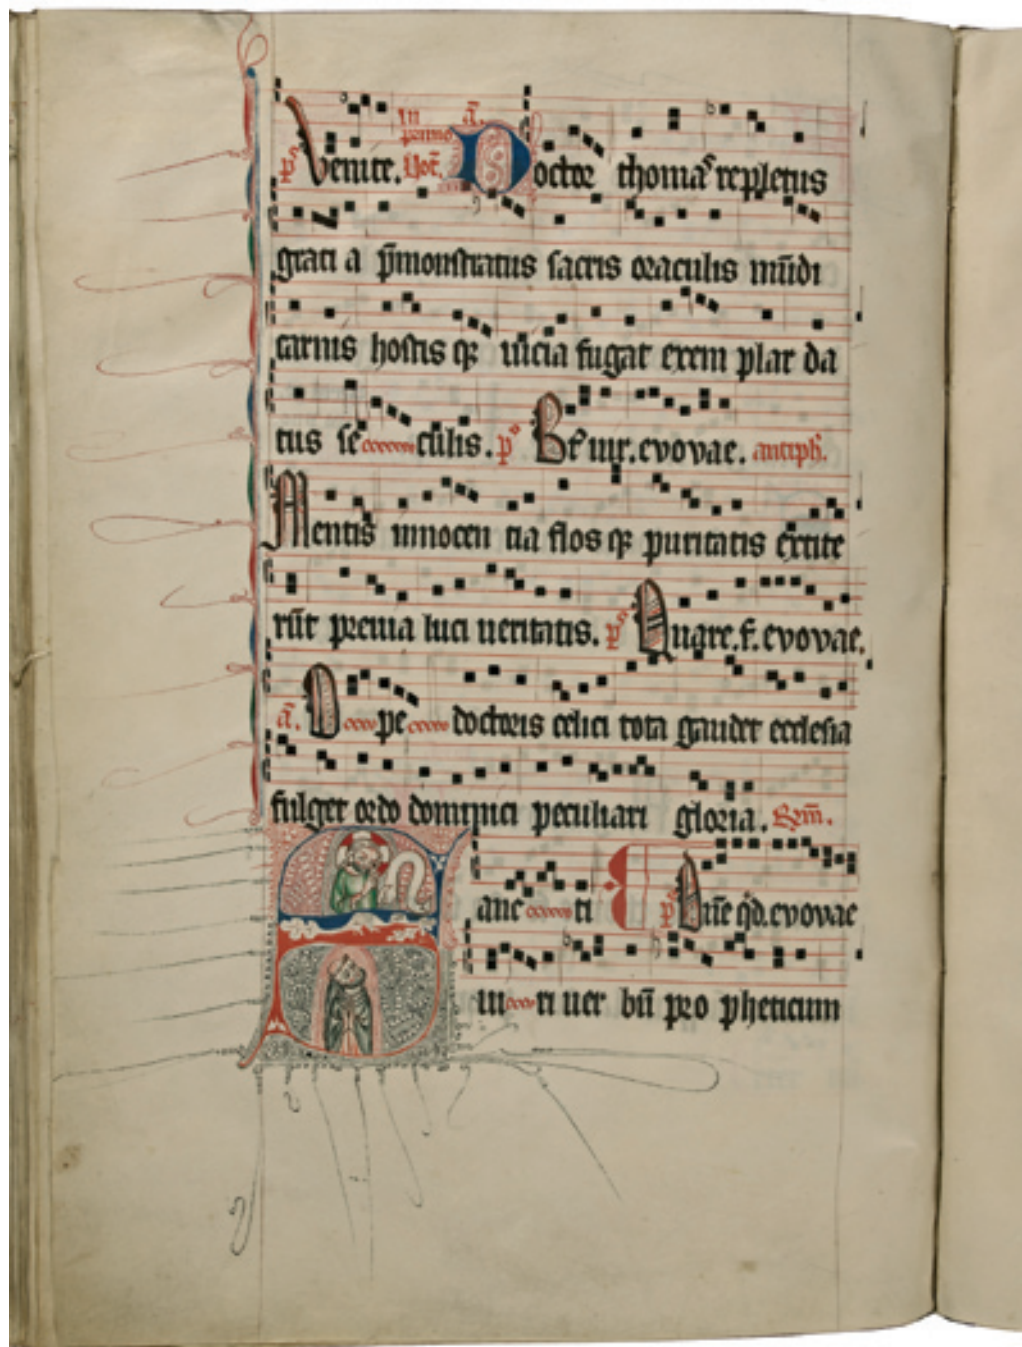 ps Venite. In primo Noct. a. Doctor thomas repletus
grati a p̄monstratus sacris oraculis mūdi
carnis hostis qꝫ uīcia fugat exem plar da
tus se cūlis. ps B̄t uir. evovae. antiph.
Mentis innocen tia flos qꝫ puritatis extite
rūt premia luci ueritatis. ps Quare. f. evovae.
a. O pe doctoris celici tota gaudet ecclesia
fulget ordo dominici peculiari gloria.
anc ti ps Dn̄e qd. evovae
ui ri uer bū pro pheticum